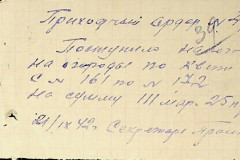 Приходный ордер №
Поступило налог
на огороды по квит
с № 161 по № 172
на сумму 111 мар. 25 п
21/IX 42 г. Секретарь